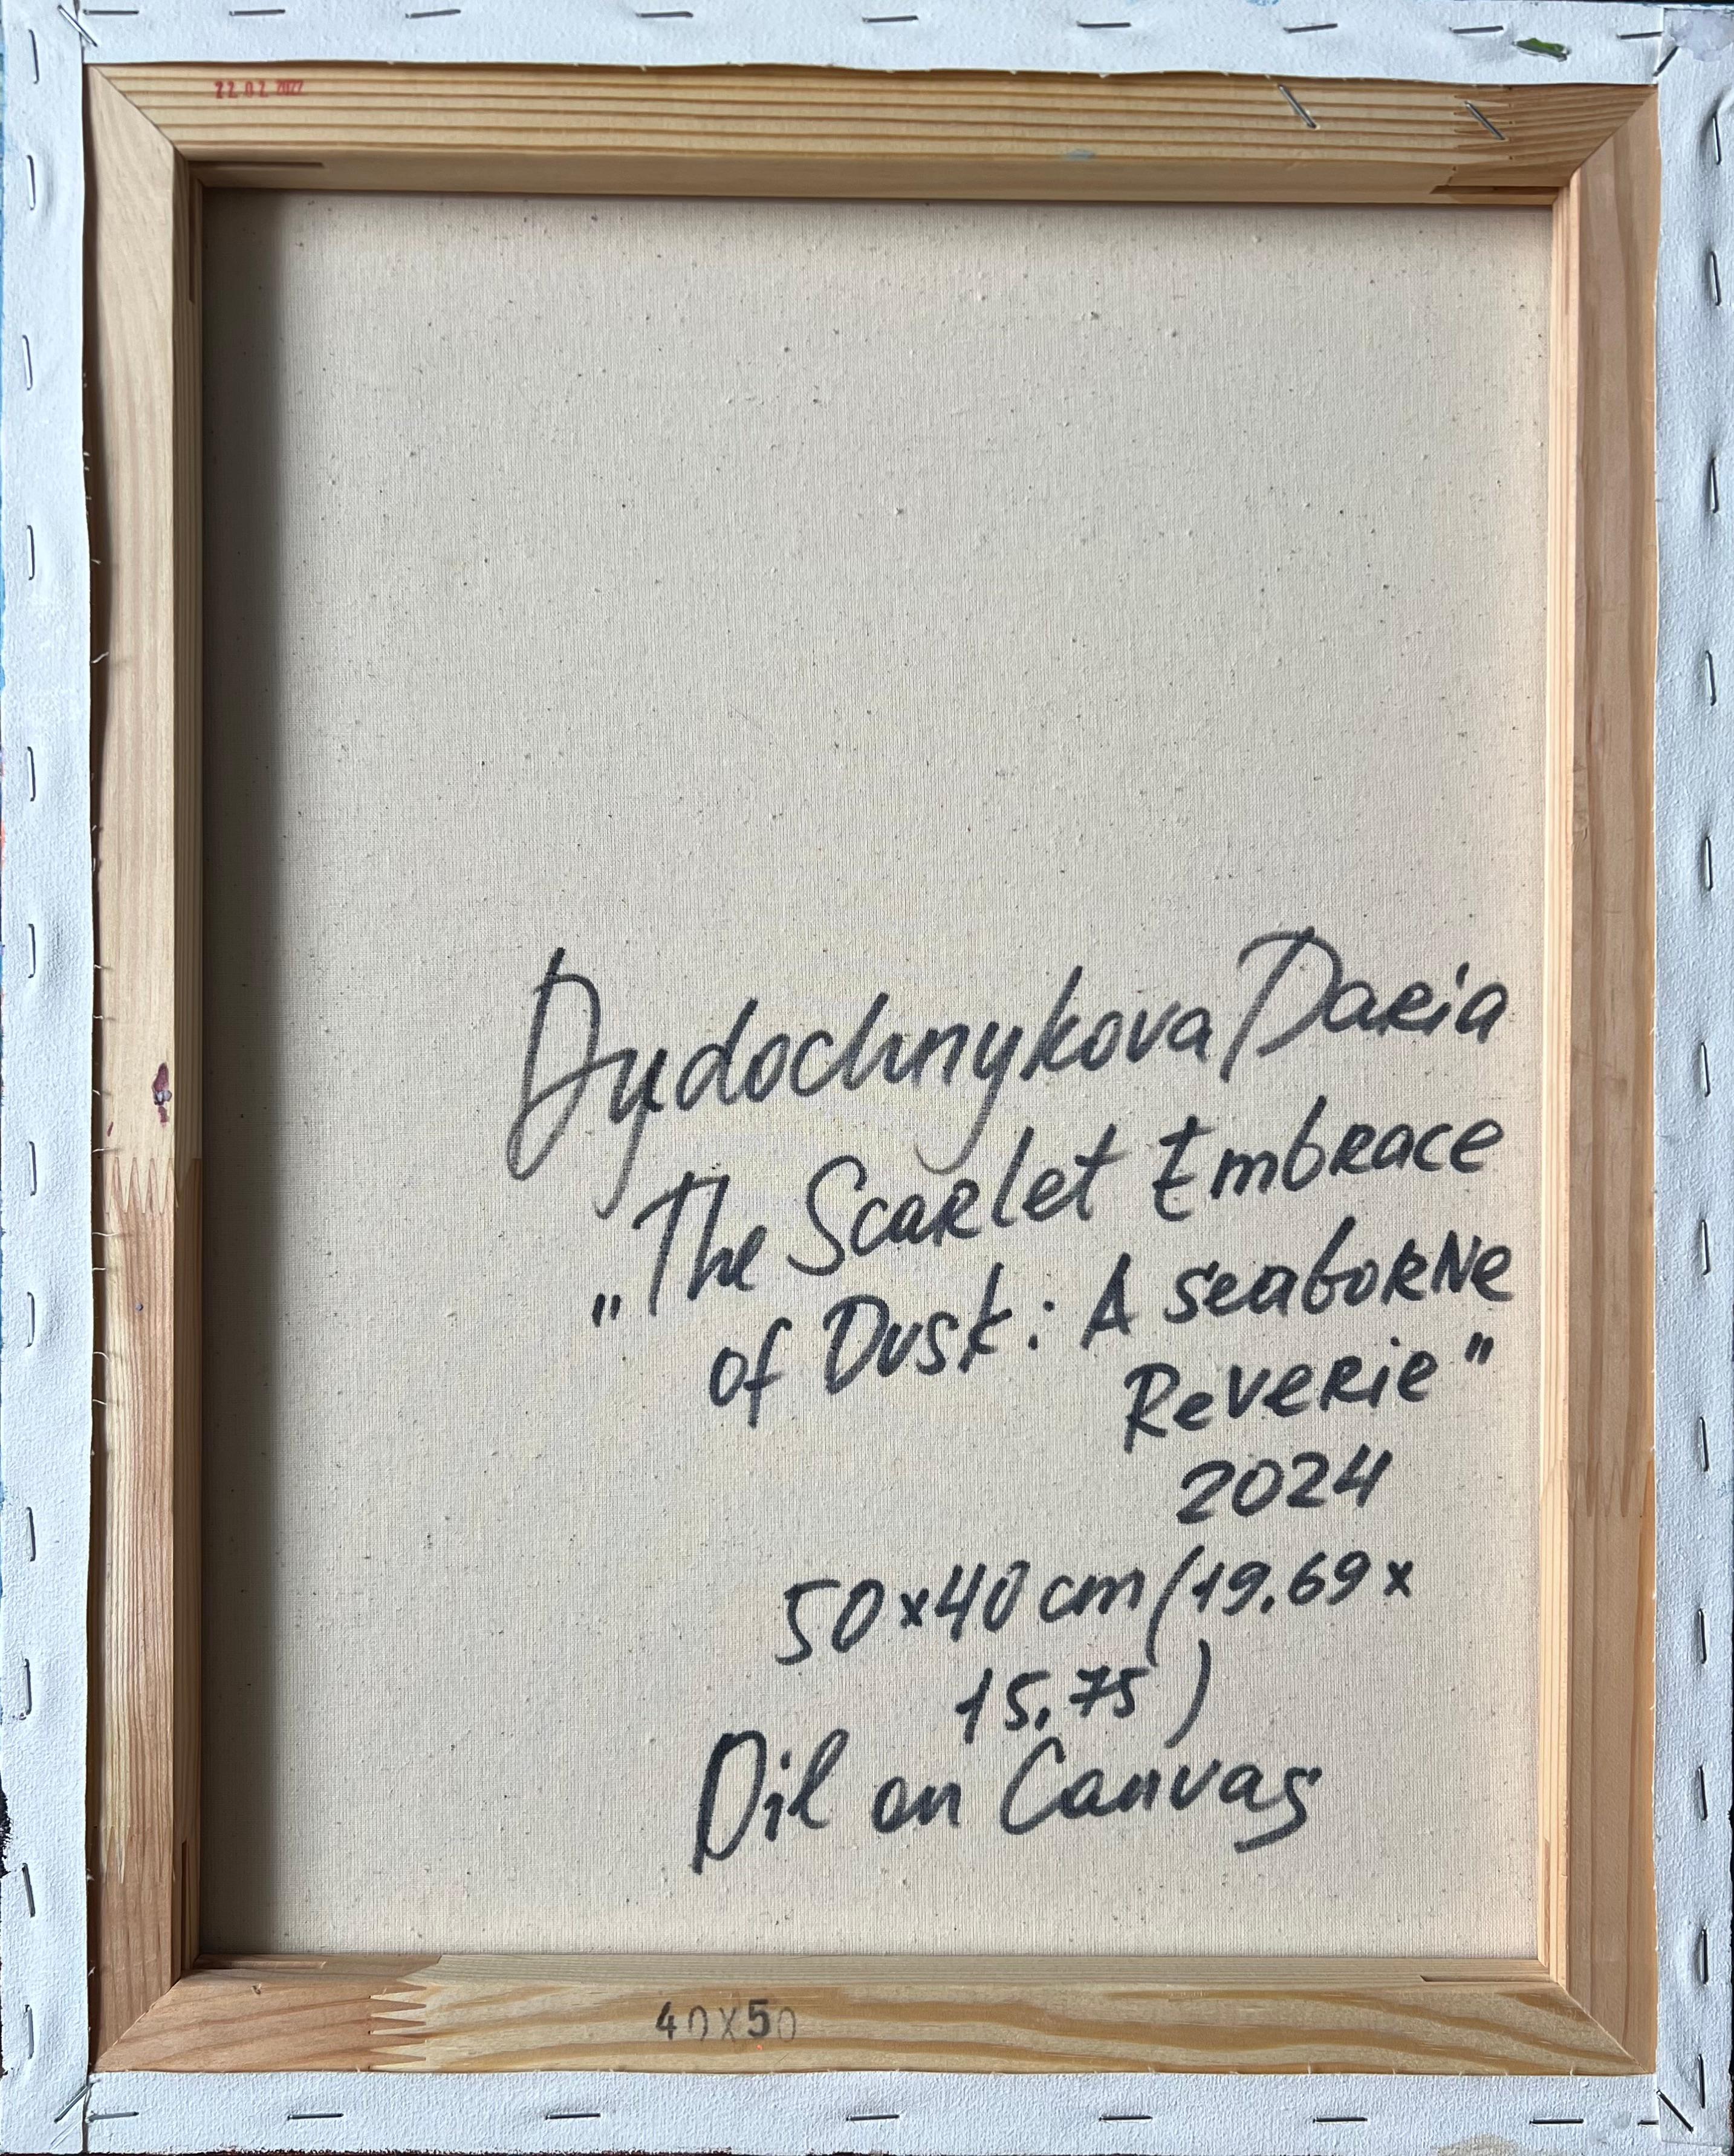 22.02 2022
Dydochnykova Daria
„The Scarlet Embrace
of Dusk: A seaborne
Reverie"
2024
50x40 cm (19.69 x
15.75)
Oil on Canvas
40X50